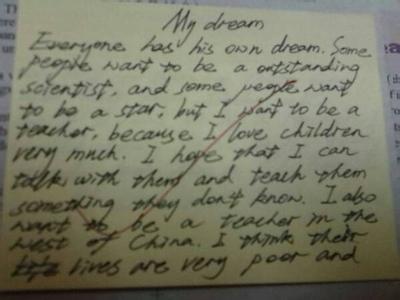 My dream
Everyone has his own dream. Some
people want to be a outstanding
scientist, and some people want
to be a star, but I want to be a
teacher, because I love children
very much. I hope that I can
talk with them and teach them
something they don't know. I also
want to be a teacher in the
west of China. I think their
lives are very poor and